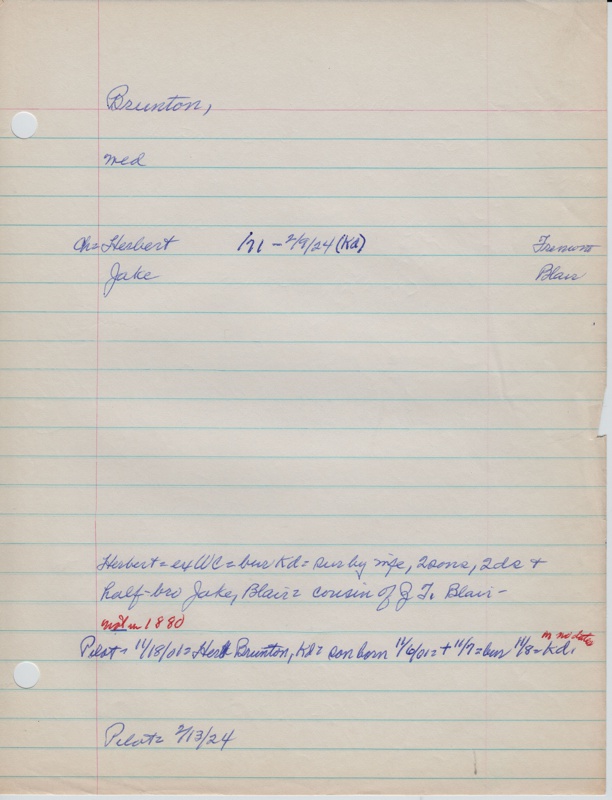 Brunton,
med
ch= Herbert 1/71 - 2/9/24 (Kd) Fremont
Jake Blair
Herbert = ex WC = bur Kd = sur by wife, 2 sons, 2 ds +
half-bro Jake, Blair = cousin of J T. Blair -
not in 1880
Pilot = 11/18/01 = Herb Brunton, Kd = son born 11/6/01 = + 11/7 = bur 11/8 = Kd.
m no dates
Pilot = 2/13/24